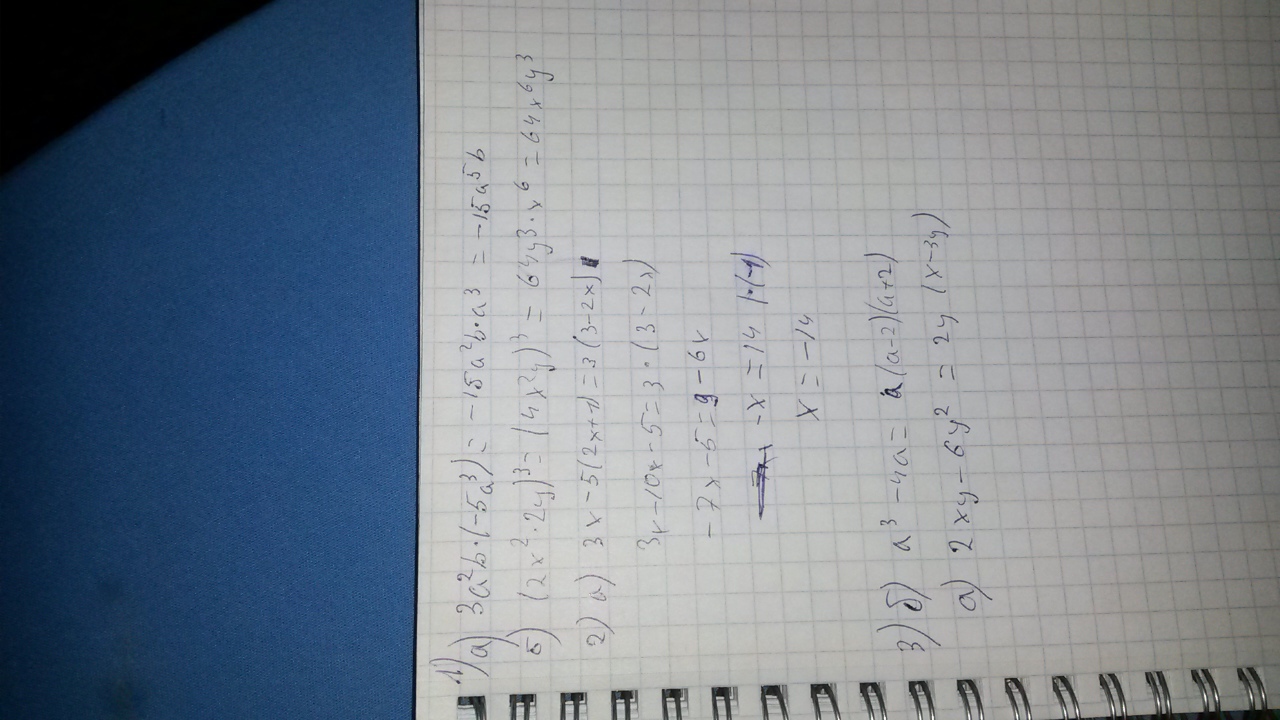 1)
а) 3a²b·(-5a³) = -15a²b·a³ = -15a⁵b
б) (2x²·2y)³ = (4x²y)³ = 64y³·x⁶ = 64x⁶y³
2) а) 3x-5(2x+1)=3(3-2x)
3x-10x-5=3·(3-2x)
-7x-5=9-6x
-x=14 |·(-1)
x=-14
3) б) a³-4a= a(a-2)(a+2)
а) 2xy-6y² = 2y(x-3y)